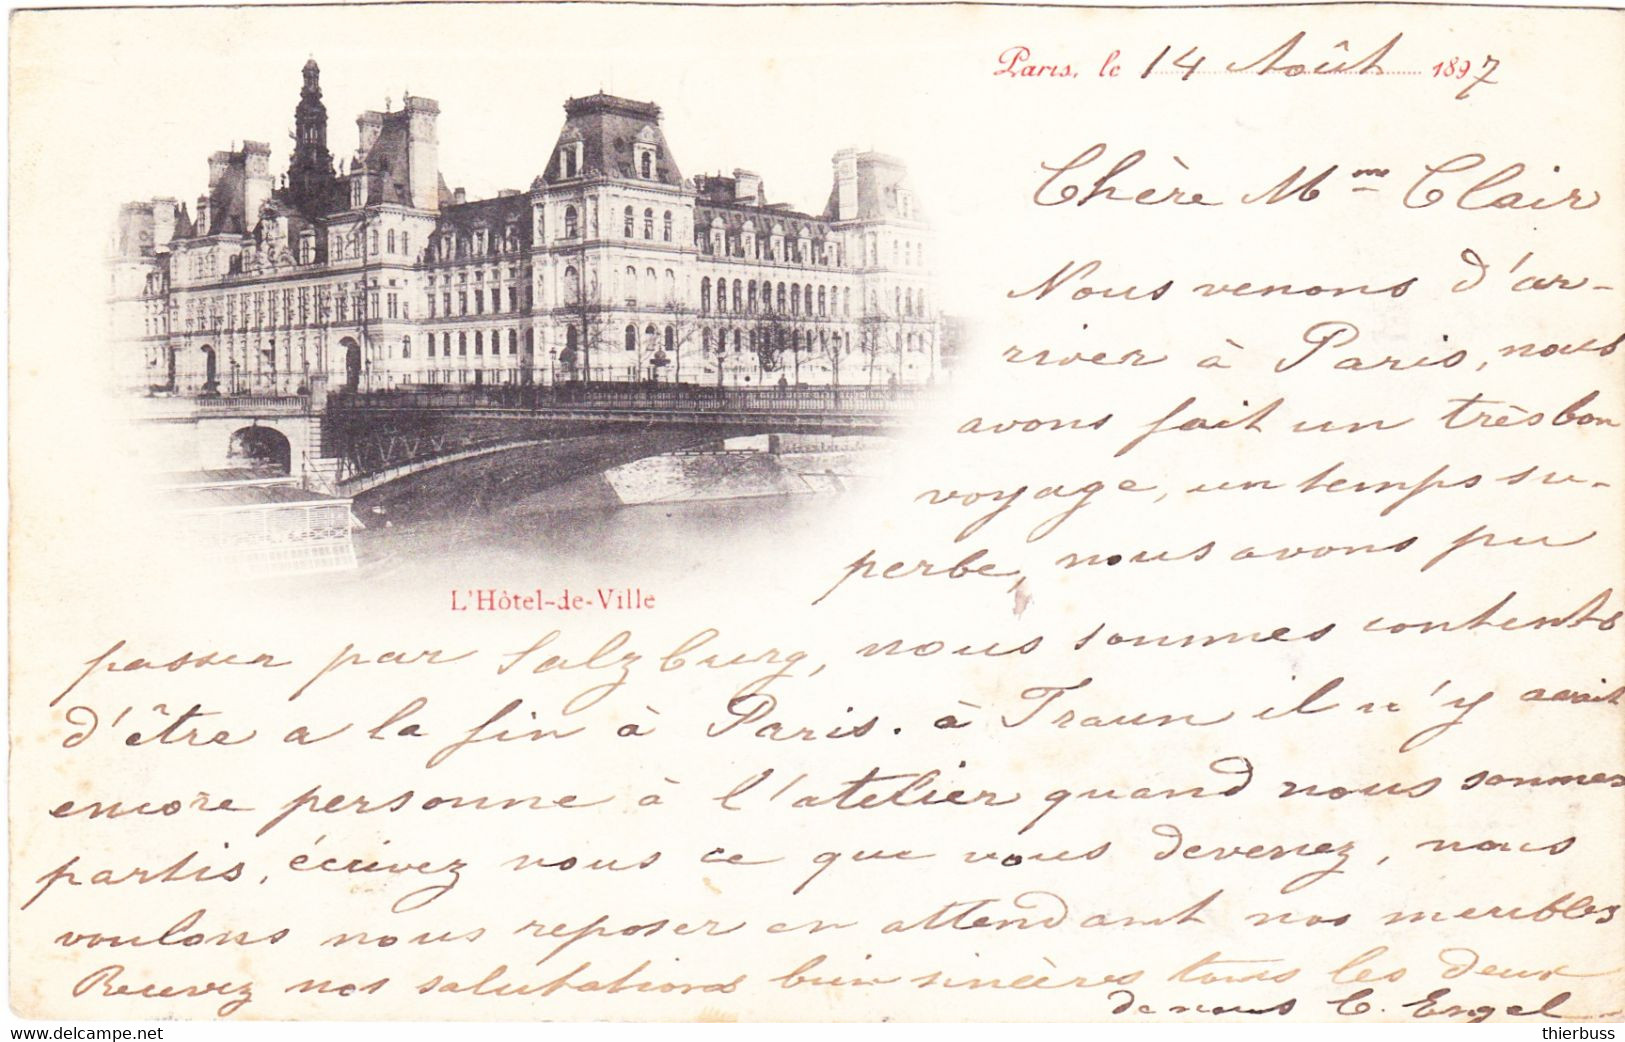 Paris, le 14 Août 1897
Chère Mme Clair
Nous venons d'ar-
river à Paris, nous
avons fait un très bon
voyage, un temps su-
perbe, nous avons pu
L'Hôtel-de-Ville
passer par Salzburg, nous sommes contents
d'être a la fin à Paris. à Traun il n'y avait
encore personne à l'atelier quand nous sommes
partis, écrivez nous ce que vous devenez, nous
voulons nous reposer en attendant nos meubles
Recevez nos salutations bien sincères tous les deux
de nous C. Engel
delcampe.net
thierbuss